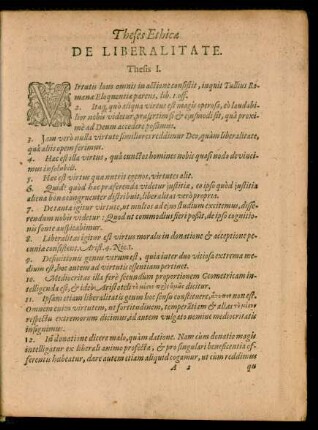 Theses Ethicæ
DE LIBERALITATE.
Thesis I.
VIrtutis laus omnis in actione consistit, inquit Tullius Ro-
manæ Eloquentiæ parens, lib. 1. off.
2. Itaq; quò aliqua virtus est magis operosa, eò laudabi-
lior nobis videtur, præsertim si & ejusmodi sit, quâ proxi-
mè ad Deum accedere possimus.
3. Jam verò nulla virtute similiores reddimur Deo, quàm liberalitate,
quâ aliis opem ferimus.
4. Hæc est illa virtus, quâ cunctos homines nobis quasi nodo devinci-
mus insolubili.
5. Hæc est virtus quâ nutrit egenos, virtutes alit.
6. Quid? quòd hæc præferenda videtur justitiæ, eo ipso quòd justitia
aliena bona congruenter distribuit, liberalitas verò propria.
7. De tanta igitur virtute, ut multos ad ejus studium excitemus, disse-
rendum nobis videtur: Quod ut commodius fieri possit, de ipso cognitio-
nis fonte auspicabimur.
8. Liberalitas igitur est virtus moralis in donatione & acceptione pe-
cuniæ consistens. Arist. 4. Nic. 1.
9. Definitionis genus virtus est, quia inter duo vitiosa extrema me-
dium est, hoc autem ad virtutis essentiam pertinet.
10. Mediocritas illa ferè secundùm proportionem Geometricam in-
telligenda est, & ideò Aristoteli
dicitur.
11. Ipsam etiam liberalitatis genus hoc sensu constituere,
Omnem enim virtutem, ut fortitudinem, temperantiam &
respectu extremorum dicimus, id autem vulgato nomine mediocritatis
insignimus.
12. In donatione dicere malo, quàm datione. Nam cùm donatio magis
intelligatur ex liberali animo profecta, & pro singulari beneficentia of-
ferentis habeatur, dare autem etiam aliquid cogamur, ut cùm reddimus
A 2 qu